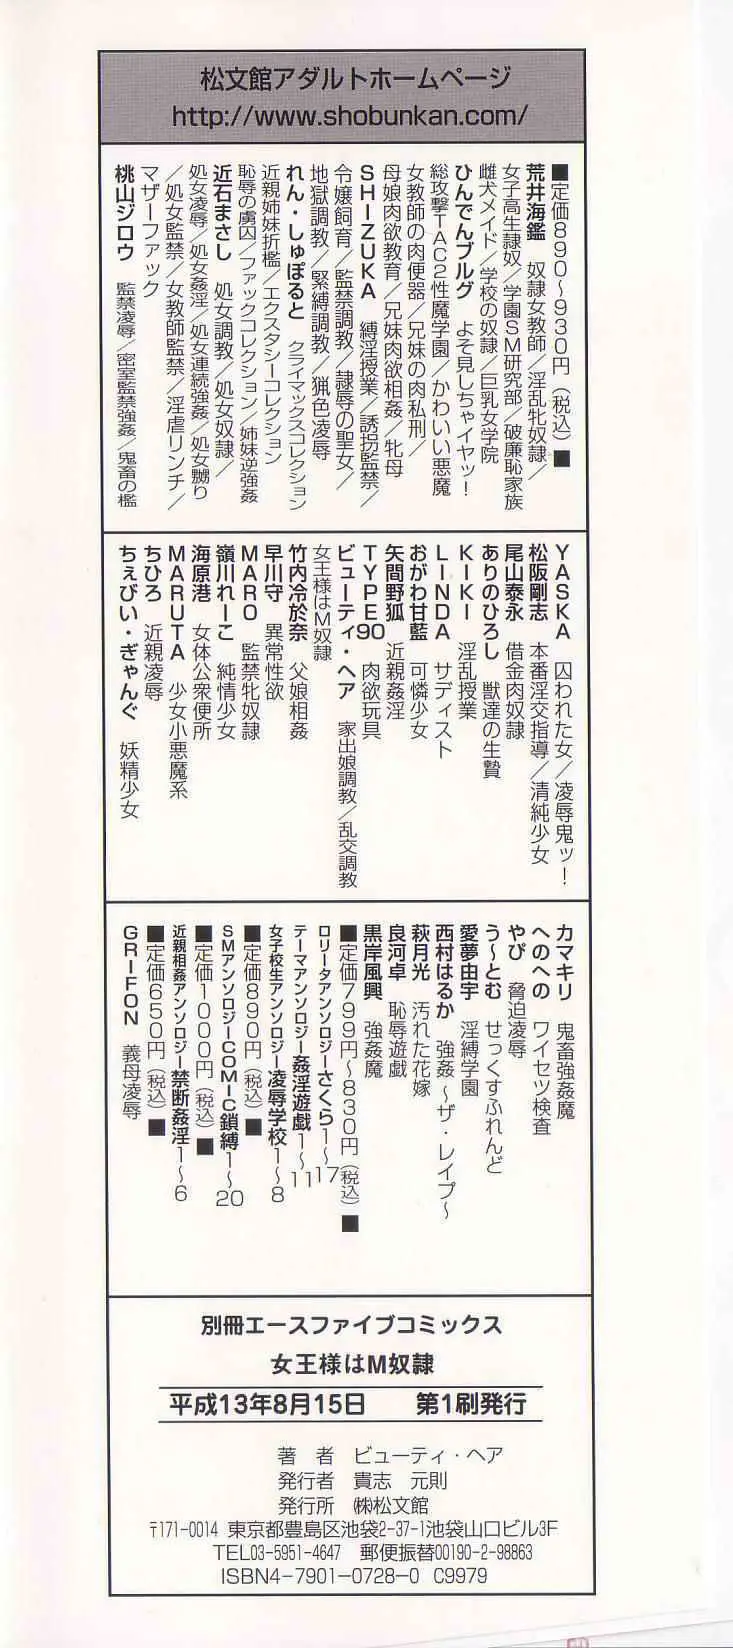 松文館アダルトホームページ
http://www.shobunkan.com/
■定価890〜930円（税込）■
荒井海鑑　奴隷女教師／淫乱牝奴隷／
女子高生隷奴／学園SM研究部／破廉恥家族
雌犬メイド／学校の奴隷／巨乳女学院
ひんでんブルグ　よそ見しちゃイヤッ！
総攻撃TAC2性魔学園／かわいい悪魔
女教師の肉便器／兄妹の肉私刑／
母娘肉欲教育／兄妹肉欲相姦／牝母
SHIZUKA　縛淫授業／誘拐監禁／
令嬢飼育／監禁調教／隷辱の聖女／
地獄調教／緊縛調教／猟色凌辱
れん・しゅぽると　クライマックスコレクション
近親姉妹折檻／エクスタシーコレクション
恥辱の虜囚／ファックコレクション／姉妹逆強姦
近石まさし　処女調教／処女奴隷／
処女凌辱／処女姦淫／処女連続強姦／処女嬲り
／処女監禁／女教師監禁／淫虐リンチ／
マザーファック
桃山ジロウ　監禁凌辱／密室監禁強姦／鬼畜の檻
YASKA　囚われた女／凌辱鬼ッ！
松阪剛志　本番淫交指導／清純少女
尾山泰永　借金肉奴隷
ありのひろし　獣達の生贄
KIKI　淫乱授業
LINDA　サディスト
おがわ甘藍　可憐少女
矢間野狐　近親姦淫
TYPE90　肉欲玩具
ビューティ・ヘア　家出娘調教／乱交調教
女王様はM奴隷
竹内冷於奈　父娘相姦
早川守　異常性欲
MARO　監禁牝奴隷
嶺川れーこ　純情少女
海原港　女体公衆便所
MARUTA　少女小悪魔系
ちひろ　近親凌辱
ちぇびい・ぎゃんぐ　妖精少女
カマキリ　鬼畜強姦魔
へのへの　ワイセツ検査
やぴ　脅迫凌辱
う〜とむ　せっくすふれんど
愛夢由宇　淫縛学園
西村はるか　強姦 〜ザ・レイプ〜
萩月光　汚れた花嫁
良河卓　恥辱遊戯
黒岸風興　強姦魔
■定価799円〜830円（税込）■
ロリータアンソロジーさくら1〜17
テーマアンソロジー姦淫遊戯1〜11
女子校生アンソロジー凌辱学校1〜8
■定価890円（税込）■
SMアンソロジーCOMIC鎖縛1〜20
■定価1000円（税込）■
近親相姦アンソロジー禁断姦淫1〜6
■定価650円（税込）■
GRIFON　義母凌辱
別冊エースファイブコミックス
女王様はM奴隷
平成13年8月15日　第1刷発行
著　者　ビューティ・ヘア
発行者　貴志　元則
発行所　㈱松文館
〒171-0014 東京都豊島区池袋2-37-1池袋山口ビル3F
TEL03-5951-4647　郵便振替00190-2-98863
ISBN4-7901-0728-0 C9979